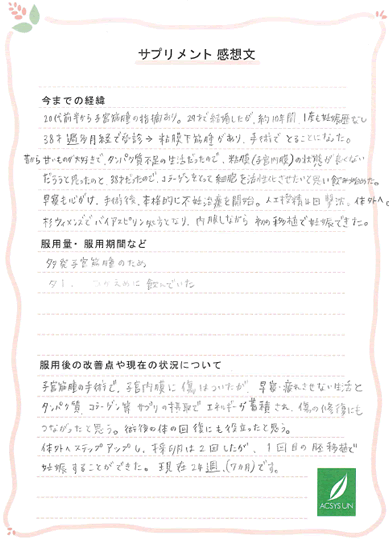 サプリメント 感想文
今までの経緯
20代前半から子宮筋腫の指摘あり。29才で結婚したが、約10年間 1度も妊娠歴なし
38才 過多月経で受診→粘膜下筋腫があり、手術でとることになった。
昔から甘いものが大好きで、タンパク質不足の生活だったので、粘膜(子宮内膜)の状態が良くない
だろうと思ったのと、38才だったので、コラーゲンをとって細胞を活性化させたいと思い飲み始めた。
早寝も心がけ、手術後、本格的に不妊治療を開始。人工授精4回 撃沈。体外へ。
杉ウィメンズでバイアスピリン処方となり、内服しながら 初の移植で妊娠できた。
服用量・服用期間など
多発子宮筋腫のため
つかえめに 飲んでいた
服用後の改善点や現在の状況について
子宮筋腫の手術で、子宮内膜に傷はついたが、早寝・疲れさせない生活と
タンパク質、コラーゲン等 サプリの摂取で エネルギーが蓄積され、傷の修復にも
つながったと思う。術後の体の回復にも役立ったと思う。
体外へステップアップし、採卵は2回したが、1回目の胚移植で
妊娠することができた。現在24週。(7カ月)です。
ACSYS UN